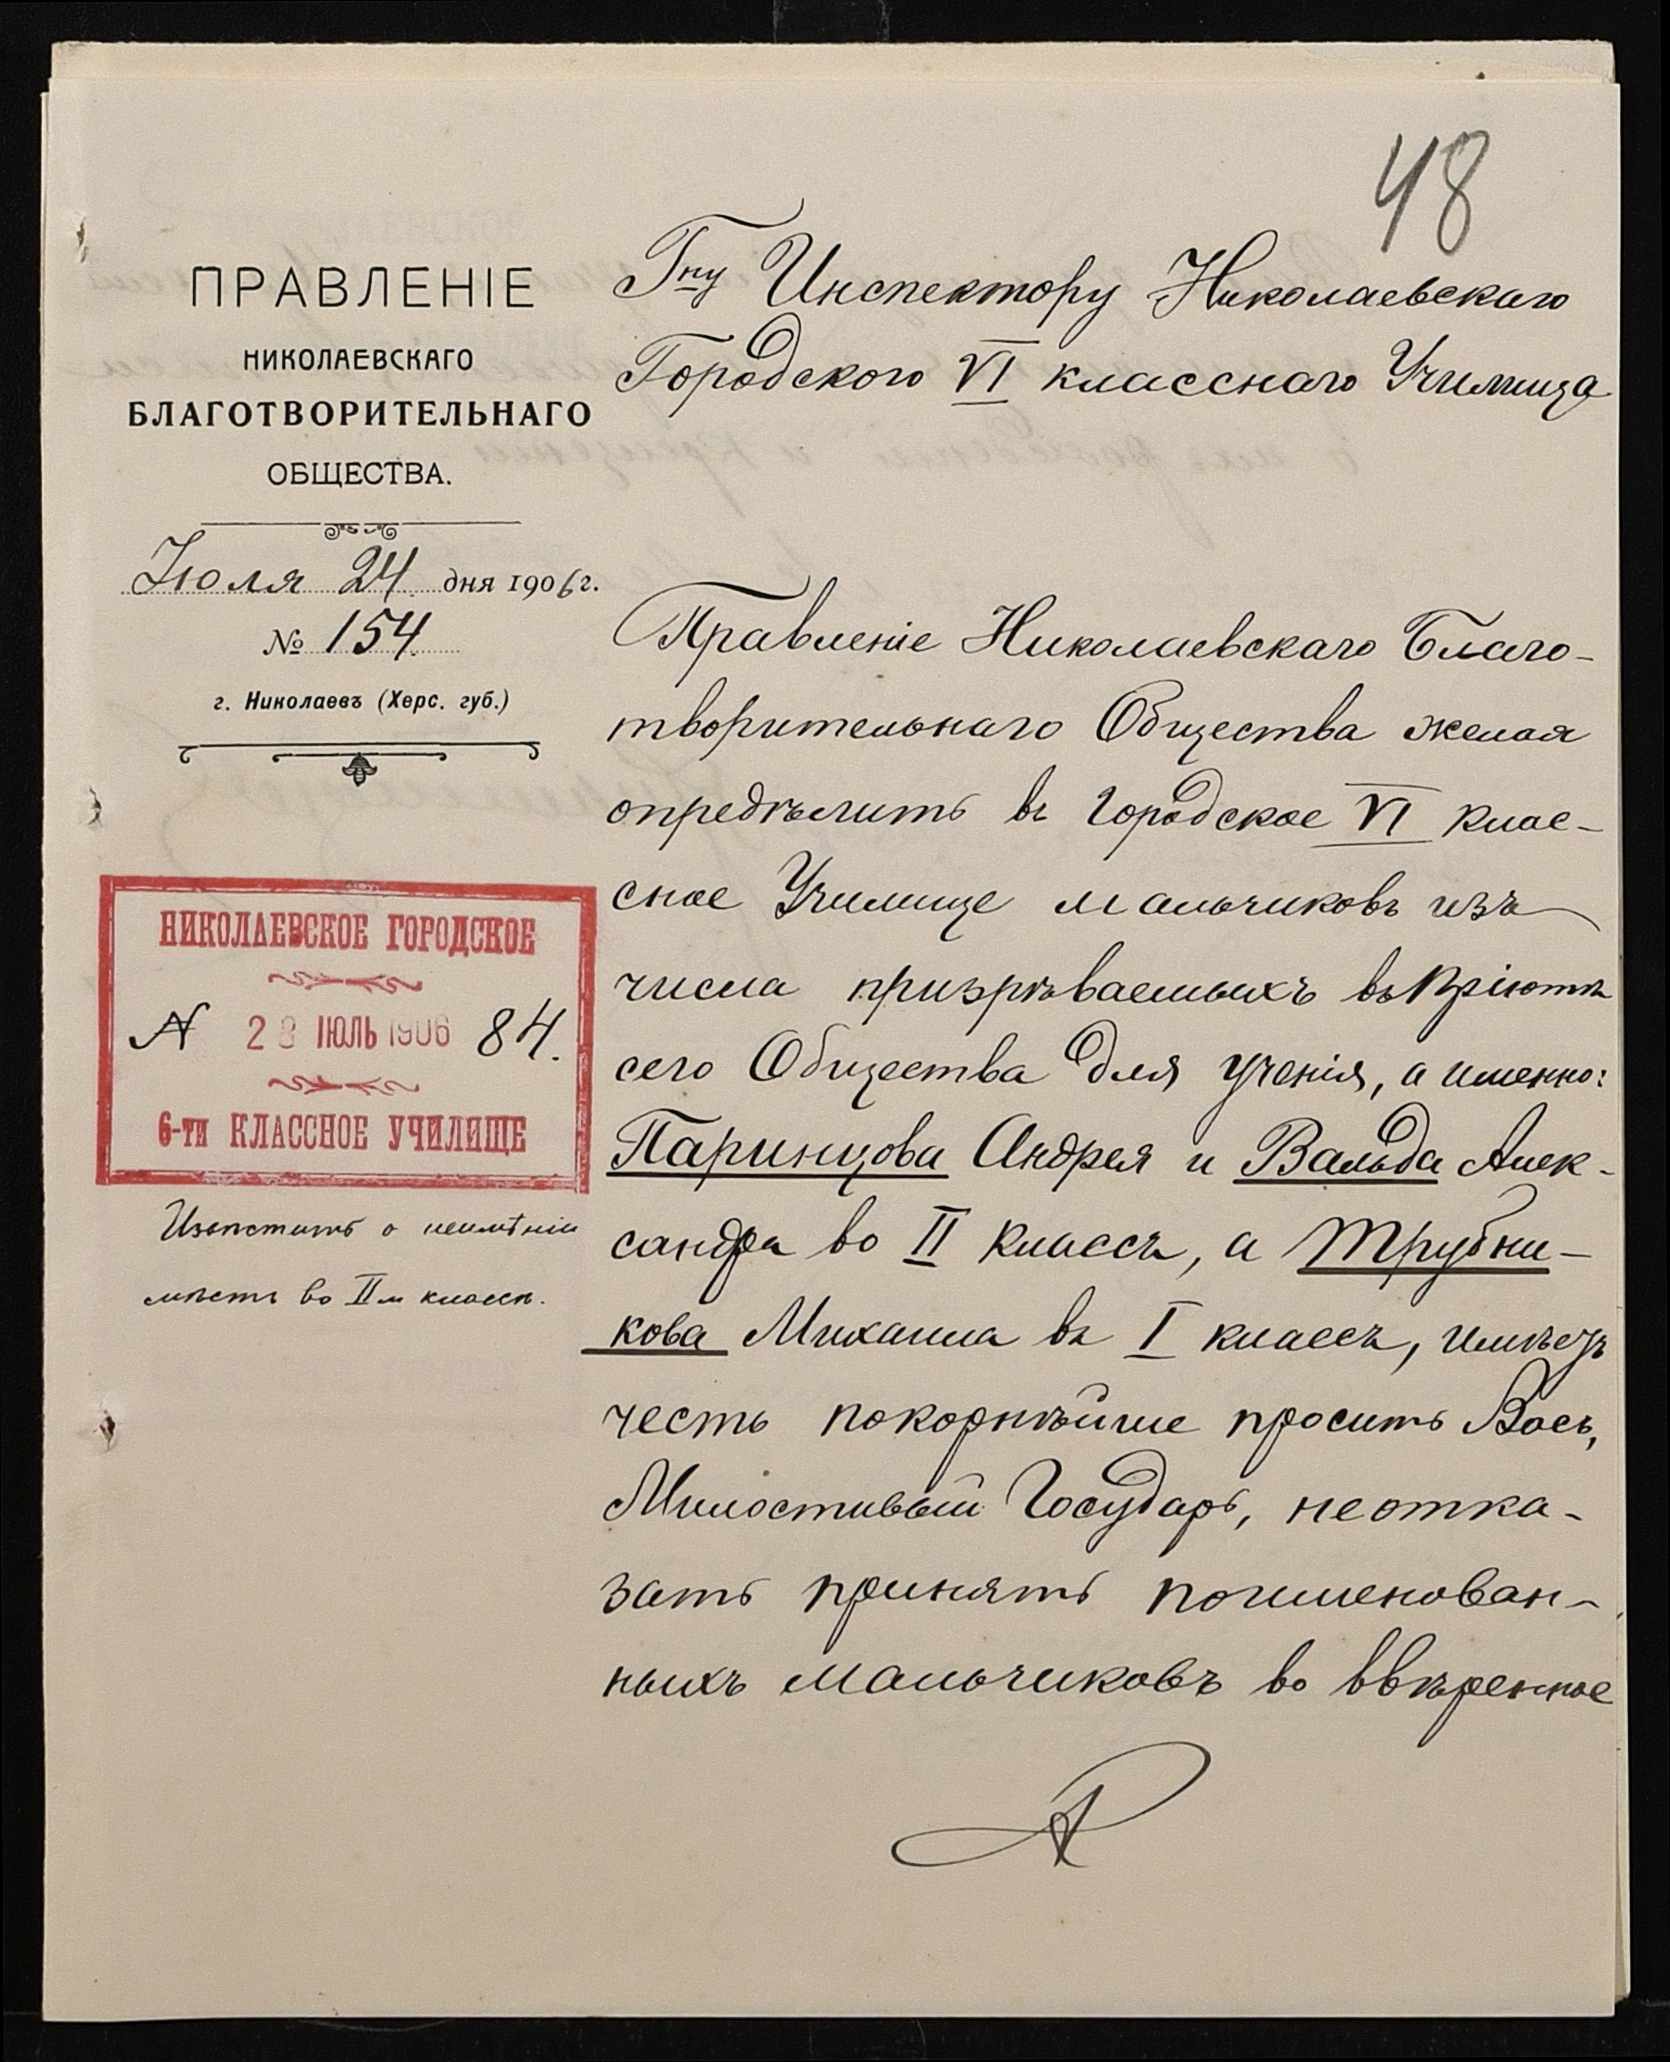 48
ПРАВЛЕНІЕ
НИКОЛАЕВСКАГО
БЛАГОТВОРИТЕЛЬНАГО
ОБЩЕСТВА.
Іюля 24 дня 1906 г.
№ 154.
г. Николаевъ (Херс. губ.)
НИКОЛАЕВСКОЕ ГОРОДСКОЕ
№ 28 ІЮЛЬ 1906 84.
6-ти КЛАССНОЕ УЧИЛИЩЕ
Извѣстить о неимѣніи
мѣстъ во IIм классѣ.
Гну Инспектору Николаевскаго
Городского VI класснаго Училища
Правленіе Николаевскаго Благо-
творительнаго Общества желая
опредѣлить въ Городское VI клас-
сное Училище мальчиковъ изъ
числа призрѣваемыхъ въ Пріютѣ
сего Общества для ученія, а именно:
Паринцова Андрея и Вальда Алек-
сандра во II классъ, а Трубни-
кова Михаила въ I классъ, имѣетъ
честь покорнѣйше просить Васъ,
Милостивый Государь, не отка-
зать принять поименован-
ныхъ мальчиковъ во ввѣренное